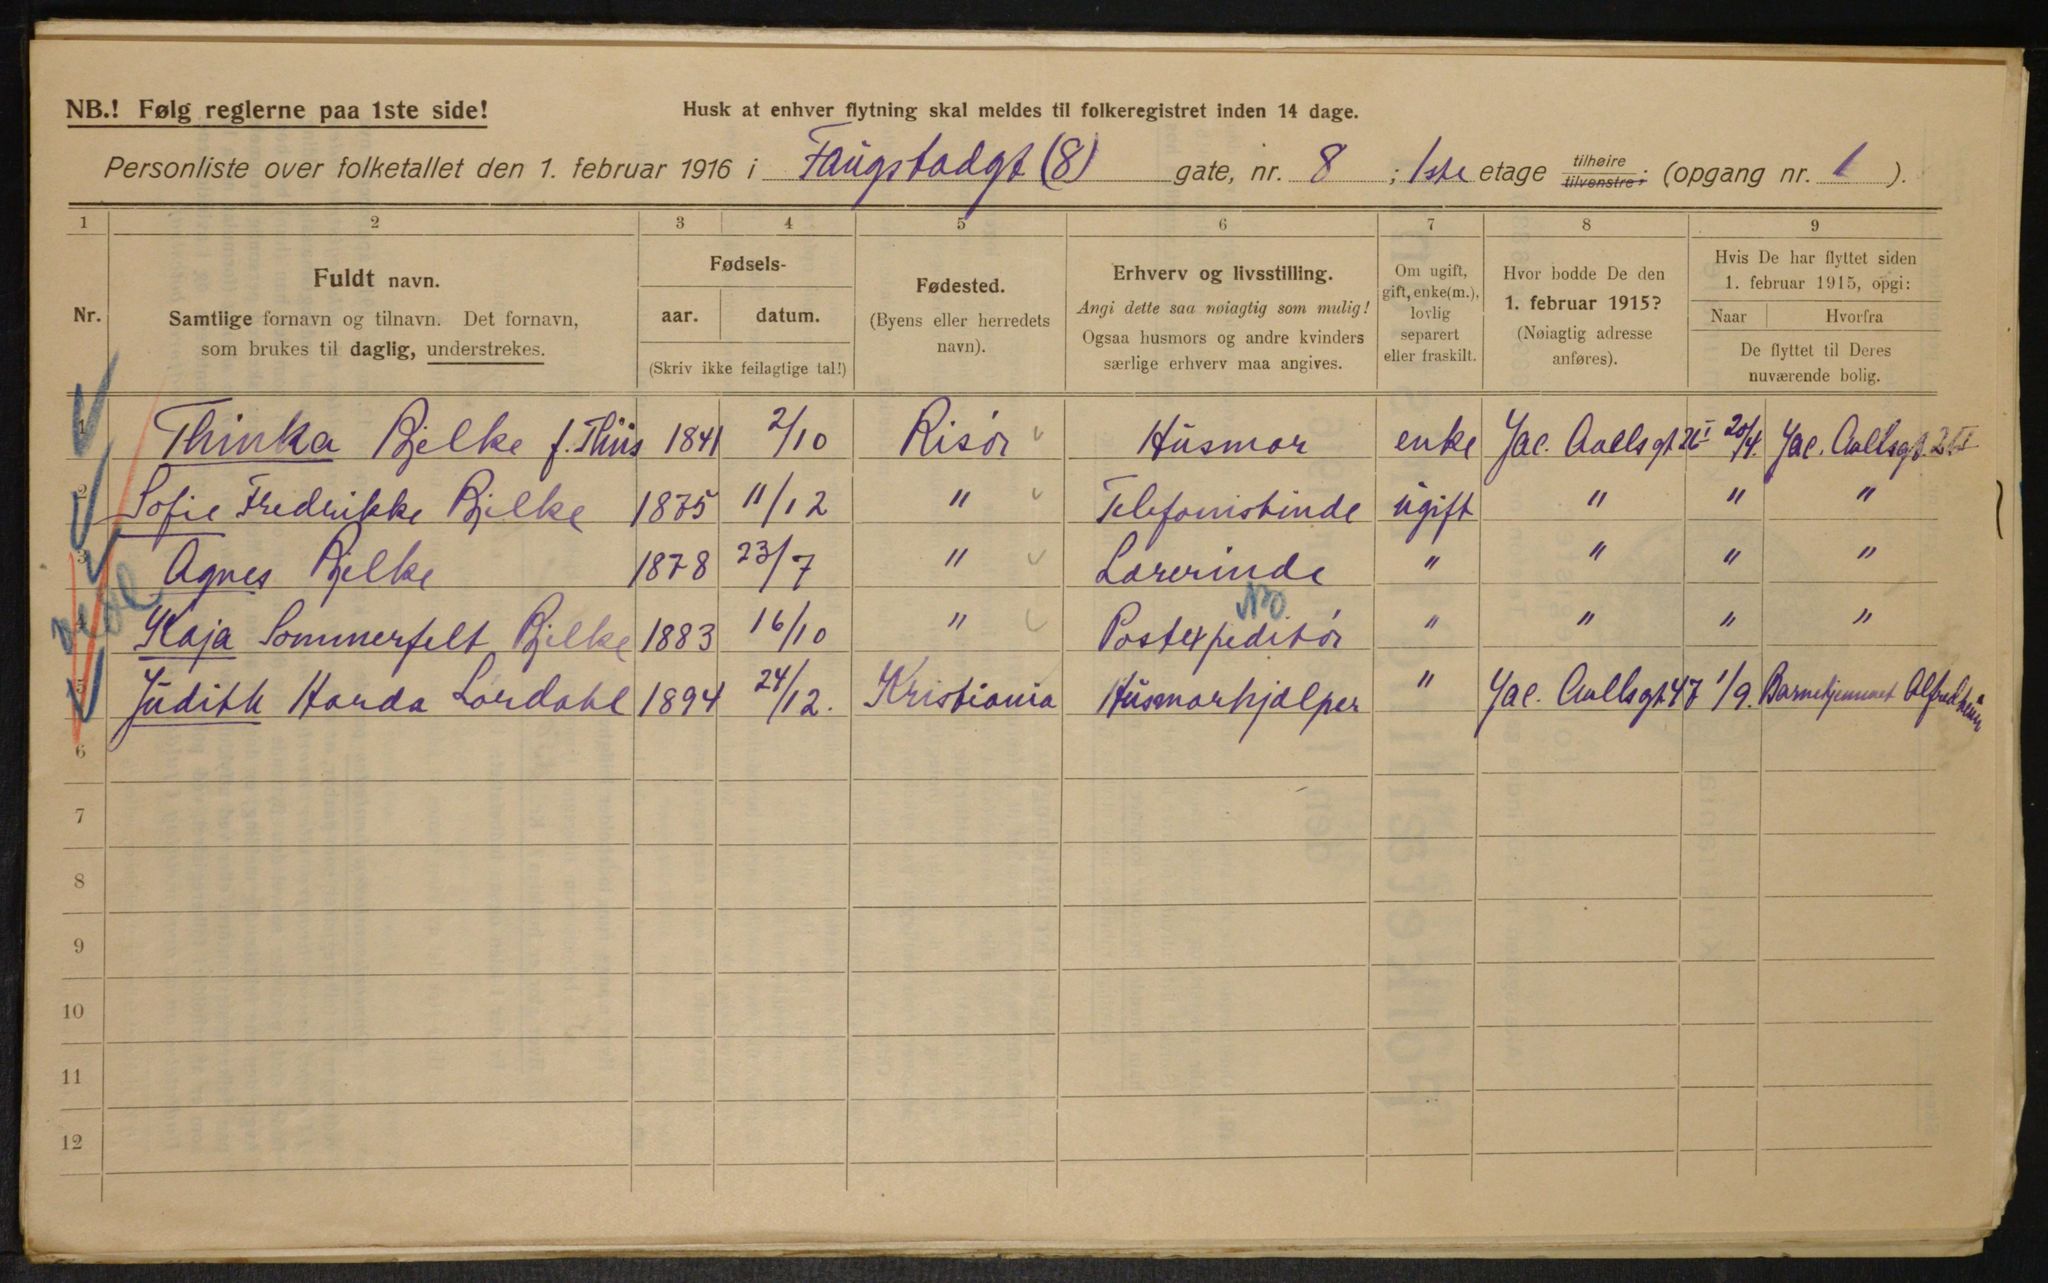 NB.! Følg reglerne paa 1ste side!
Husk at enhver flytning skal meldes til folkeregistret inden 14 dage.
Personliste over folketallet den 1. februar 1916 i Faugstadgt (8) gate, nr. 8 ; 1ste etage tilhøire tilvenstre; (opgang nr. 1 ).
1 2 3 4 5 6 7 8 9
Nr.
Fuldt navn.
Samtlige fornavn og tilnavn. Det fornavn,
som brukes til daglig, understrekes.
Fødsels-
aar. datum.
(Skriv ikke feilagtige tal!)
Fødested.
(Byens eller herredets
navn).
Erhverv og livsstilling.
Angi dette saa nøiagtig som mulig!
Ogsaa husmors og andre kvinders
særlige erhverv maa angives.
Om ugift,
gift, enke(m.),
lovlig
separert
eller fraskilt.
Hvor bodde De den
1. februar 1915?
(Nøiagtig adresse
anføres).
Hvis De har flyttet siden
1. februar 1915, opgi:
Naar Hvorfra
De flyttet til Deres
nuværende bolig.
1 Thinka Bjelke f. Thiis 1841 2/10 Risør Husmor enke Jac. Aallsgt 20/4. Jac. Aallsgt.
2 Sofie Fredrikke Bjelke 1875 11/12 " Telefonistinde ugift " " "
3 Agnes Bjelke 1878 23/7 " Lærerinde " " " "
4 Kaja Sommerfelt Bjelke 1883 16/10 " Postexpeditør " " " "
5 Judith Harda Lørdahl 1894 24/12. Kristiania Husmorhjælper " Jac. Aallsgt 47 1/9. Barnehjemmet Alfredheim
6
7
8
9
10
11
12